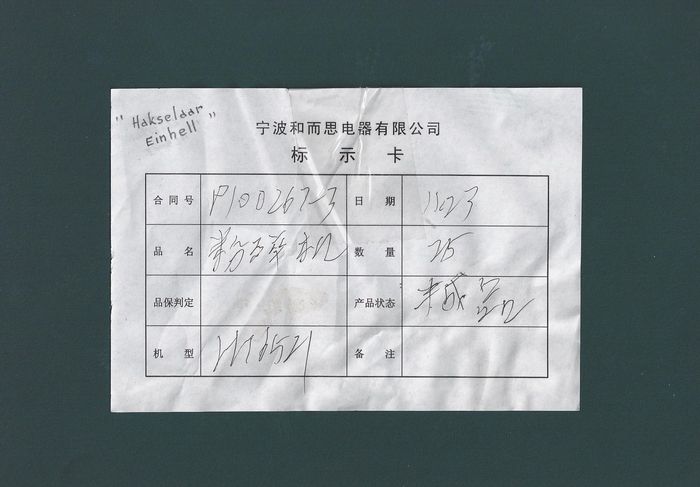 "Hakselaar
Einhell"
宁波和而思电器有限公司
标 示 卡
合同号 P100267-3 日 期 11.23
品 名 粉碎机 数 量 25
品保判定 产品状态 半成品
机 型 备 注